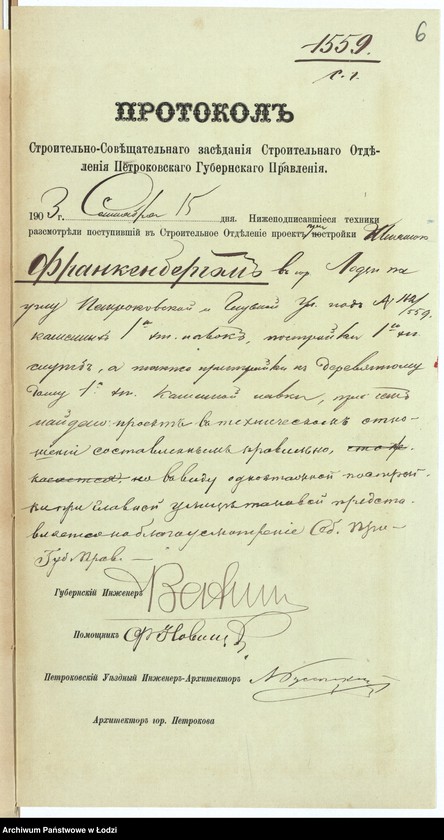 6
1559.
ПРОТОКОЛЪ
Строительно-Совѣщательнаго засѣданія Строительнаго Отдѣ-
ленія Петроковскаго Губернскаго Правленія.
1903 г. Сентября 15 дня. Нижеподписавшіеся техники
разсмотрѣли поступившій въ Строительное Отдѣленіе проектъ постройки
Франкенбергомъ въ гор. Лодзи на
углу Петроковской и Глухой ул. подъ №
каменныхъ 1о эт. лавокъ, постройки 1о эт.
службъ, а также пристройки къ деревянному
дому 1о эт. каменной лавки, при чемъ
найдено: проектъ въ техническомъ отно-
шеніи составленнымъ правильно,
но въ виду одноэтажной построй-
ки при главной улицѣ таковой предста-
вляется на благоусмотрѣніе Об. При-
Губ. Прав.
Губернскій Инженеръ
Помощникъ Ф Новицкій
Петроковскій Уѣздный Инженеръ-Архитекторъ
Архитекторъ гор. Петрокова
Archiwum Państwowe w Łodzi